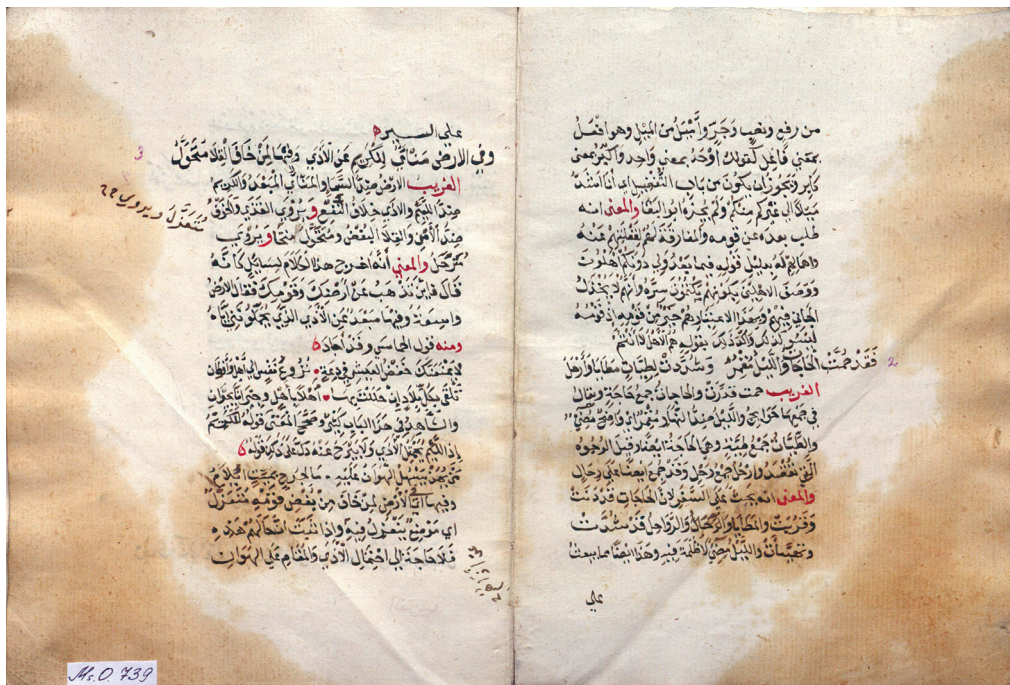 من رفع ونصب وجر وأميل من الميل وهو افعل
بمعنى فاعل كقولك اوحد بمعنى واحد واكبر بمعنى
كابر ويجوز ان يكون من باب التفضيل اي أنا أشد
ميلا الى غيركم منكم ولم يجزه ابو البقا والمعنى انه
طلب بعده عن قومه والمفارقة لهم لغفلتهم عنه
واهانتهم له بدليل قوله فيما بعد ولي دونكم اهلون
ووصف الاهلين بكونهم يكتمون سره وانهم لا يخذل
الجاني فيهم وبهذا الاعتبار هم خير من قومه اذ قومه
ليسوا كذلك واكد ذلك بقوله هم الاهل لا انتم
فقد حمت الحاجات والليل مقمر وشدت لطيات مطايا وأرحل
2
الغريب حمت قدرت والحاجات جمع حاجة ويقال
في جمعها حوايج والليل ضد النهار مقمر اي واضح مضي
والطيات جمع طية وهي الحاجة ايضا وقيل الوجوه
التي تقصد وارحل جمع رحل وقد جمع ايضا على رحال
والمعنى انه يحث على السفر لان الحاجات قد دنت
وقربت والمطايا والرحال والرواحل قد شدت
وتهيأت والليل مضي لا ظلمة فيه وهذا ايضا مما يبعث
على
على السير ه
وفي الارض منأى للكريم عن الأذى وفيها لمن خاف القلا متحول
3
الغريب الارض ضد السماء والمنأى المبعد والكريم
ضد اللئيم والاذى خلاف النفع ويروى القذى والخوف
ضد الأمن والقلا البغض ومتحول منتحا ويروى
متعزل ويروى صح
مترحل والمعنى أنه اخرج هذا الكلام لسايل كأنه
قال فاين تذهب عن أرضك وقومك فقال الارض
واسعة وفيها مبعد عن الأذى الذي يحملونني اياه
ومنه قول الحماسي وقد اجاد ه
لا يمنعنك خفض العيش في دعة نزوع نفس الى أهل وأوطان
تلقى بكل بلاد إن حللت بها أهلا بأهل وجيرانا بجيران
والشاهد في هذا الباب كثير وصحح المعنى قوله للكريم
إذ اللئيم يحمل الأذى ولا يبرح عنه دله على ذلك قوله ه
من يهن يسهل الهوان عليه ما لجرح بميت إيلام
وفيها اي في الأرض لمن خاف من بغض قومه متعزل
اي موضع يتعزل فيه واذا ثبت أن الحال هذه
فلا حاجة الى احتمال الأذى والمقام على الهوان
Ms. O. 739